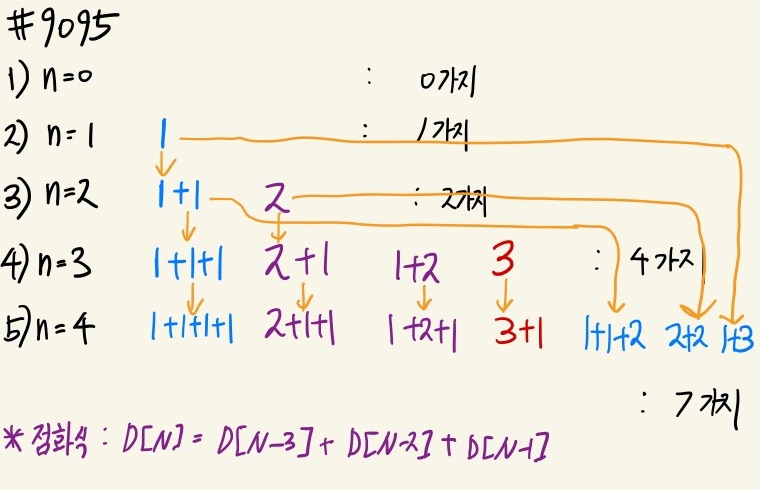 #9095
1) n=0 : 0가지
2) n=1 1 : 1가지
3) n=2 1+1 2 : 2가지
4) n=3 1+1+1 2+1 1+2 3 : 4가지
5) n=4 1+1+1+1 2+1+1 1+2+1 3+1 1+1+2 2+2 1+3
: 7가지
* 점화식 : D[N] = D[N-3] + D[N-2] + D[N-1]